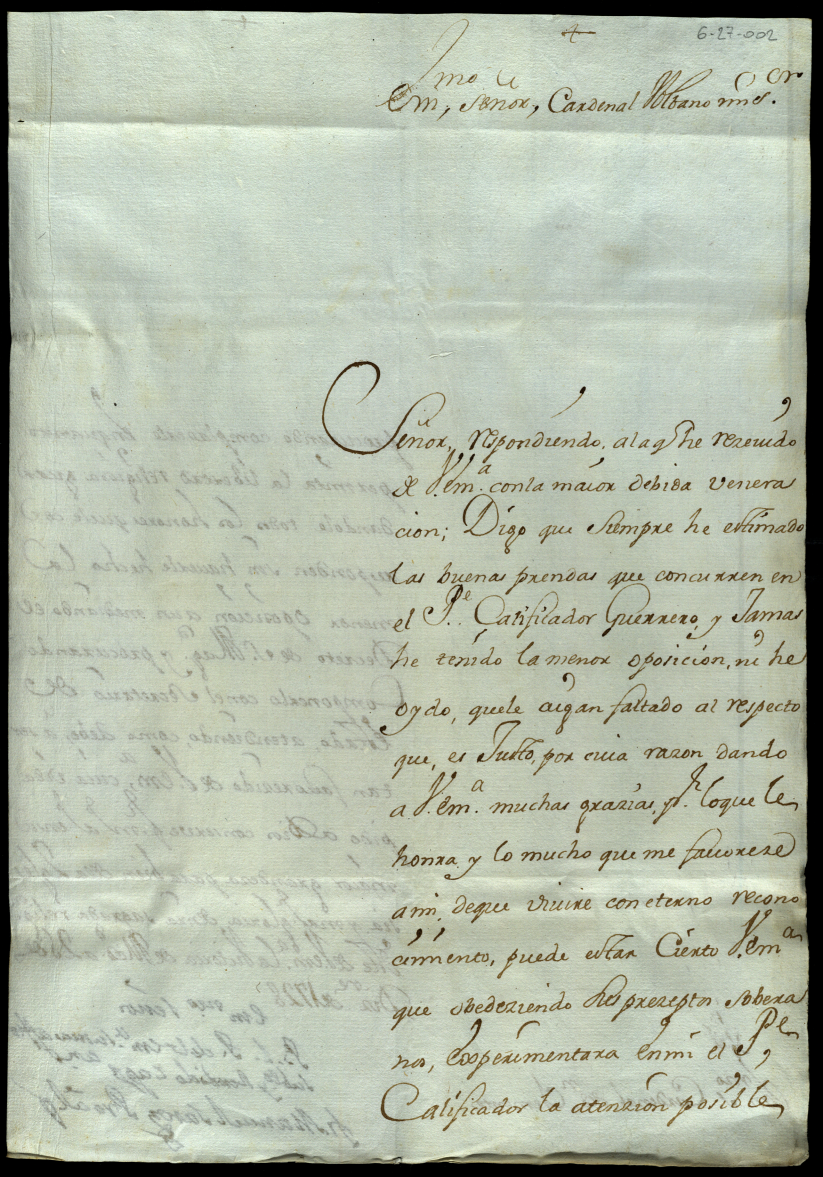 6-27-002
Em.mo Señor, Cardenal mi S.or
Señor, respondiendo, ala q he rezeuido
de V. em.a conla maior debida venera
cion; Digo que siempre he estimado
las buenas prendas que concurren en
el P.e Calificador Guerrero, y Jamas
he tenido la menor oposicion, ni he
oydo, quele aigan faltado al respecto
que, es Justo, por cuia razon dando
a V. em.a muchas grazias, p.r loque le
honra y lo mucho que me fauoreze
ami, deque viuire con eterno recono
cimiento, puede estar Cierto V. em.a
que obedeziendo sus prezeptos sobera
nos, experimentara enmi el P.e
Calificador la atenzion posible